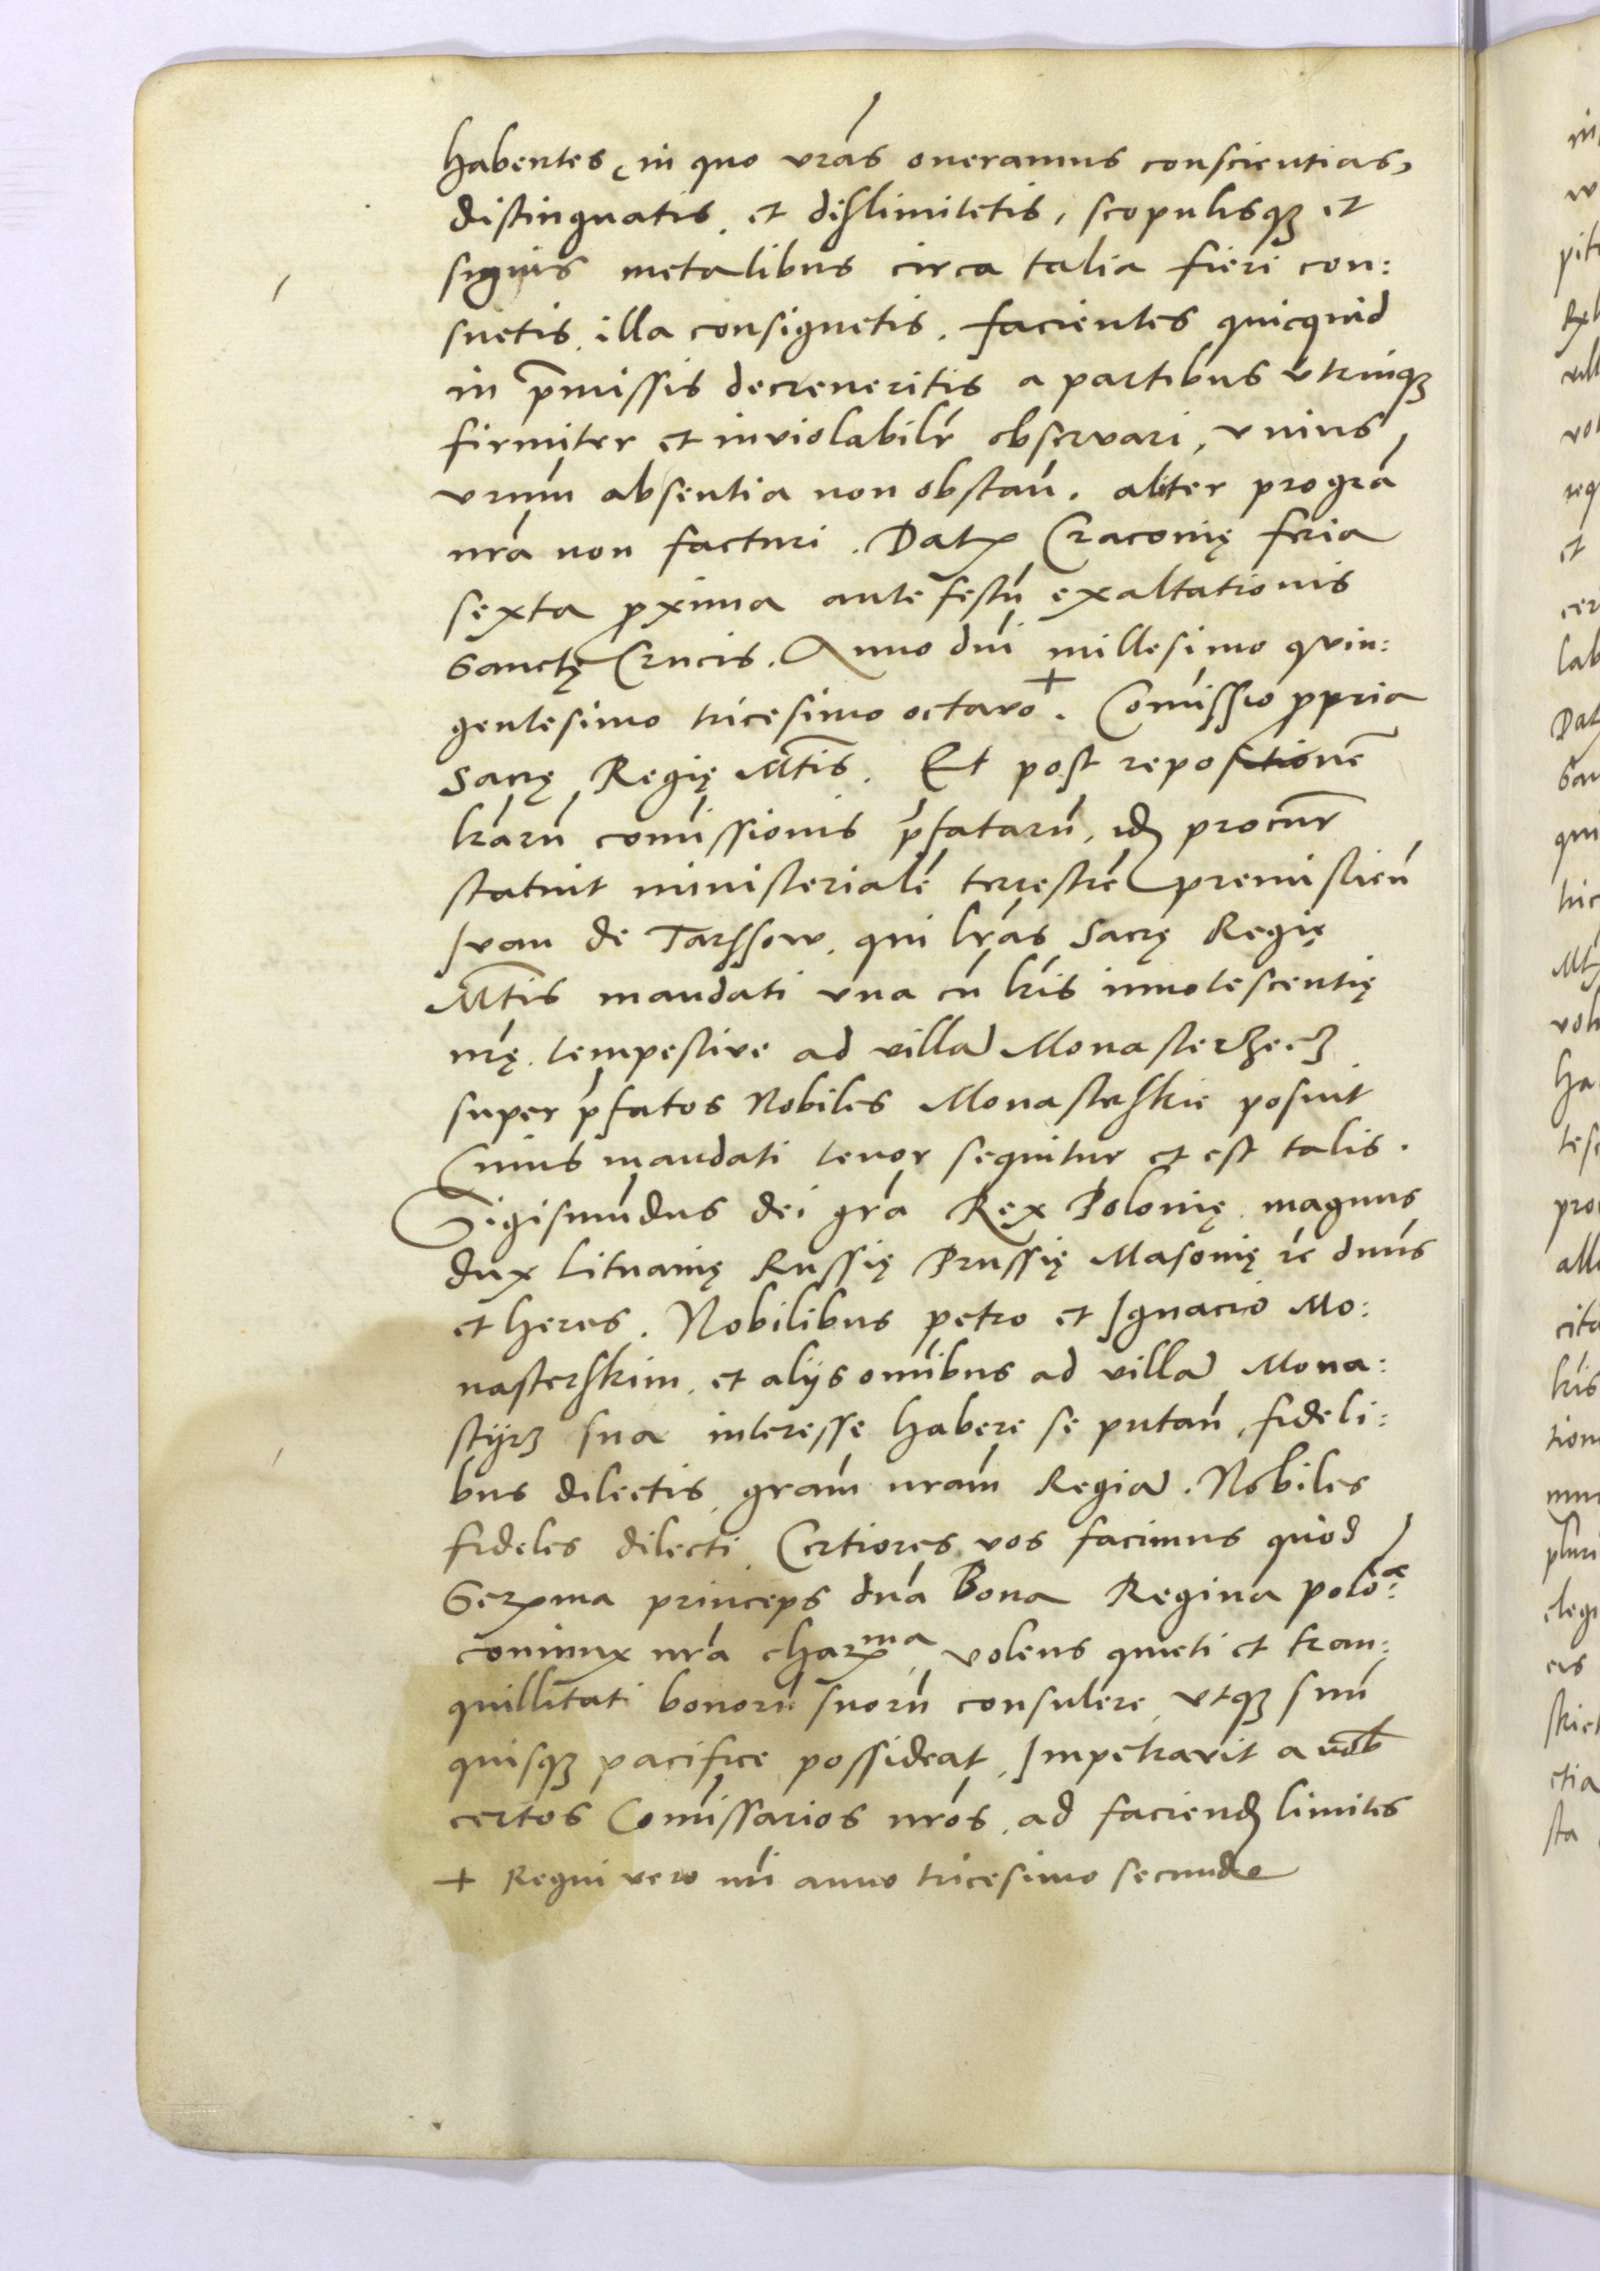 habentes, in quo vr̃as oneramus conscientias,
distinguatis et dislimitetis, scopulisqꝫ et
signis metalibus circa talia fieri con:
suetis illa consignetis. facientes quicquid
in p̃missis decreueritis a partibus vtrinqꝫ
firmiter et inviolabilr̃ obseruari, vnius
vr̃um absentia non obstan̄. aliter pro gr̃a
nr̃a non facturi. Datꝭ Cracovię feria
sexta ꝓxima ante festū exaltationis
Sanctę Crucis. Anno dn̄i millesimo quin:
gentesimo tricesimo octavo +. Com̄issio ꝓpria
Sacrę Regię Mt̃is. Et post repositionē
lr̃arū com̄issionis p̃fatarū, idꝫ procur̃
statuit ministerialē terrestrē premislien̄
Ivan de Tarssow. qui lr̃as Sacrę Regię
Mt̃is mandati vna cū lr̃is innotescentię
nr̃ę tempestive ad villā Monasterzecz
super p̃fatos Nobiles Monasterskie posuit
Cuius mandati tenor sequitur et est talis.
Sigismūdus dei gr̃a Rex Polonię magnus
dux Lituanię Russię Prussię Masovię ꝛc dn̄us
et heres. Nobilibus petro et Ignacio Mo:
nasterskim et alijs om̄ibus ad villā Mona:
styrz sua interesse habere se putan̄, fideli:
bus dilectis gr̃am nr̃am Regiā. Nobiles
fideles dilecti Certiores vos facimus quod
Serꝭma princeps dn̄a Bona Regina poloᵃ:
coniunx nr̃a charꝭᵐᵃ volens quieti et tran:
quillitati bonorū suorū consulere, vtqꝫ suū
quisqꝫ pacifice possideat, Impetravit a nob̃
certos Com̄issarios nr̃os, ad faciendꝫ limites
+ Regni vero nr̃i anno tricesimo secundo